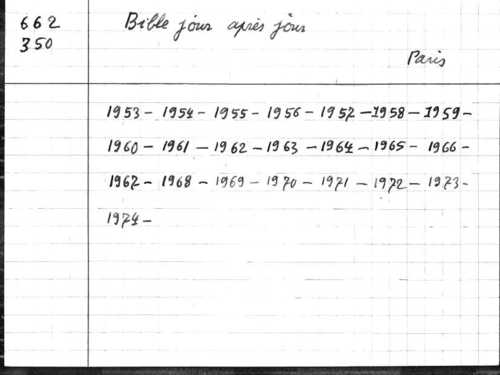 662
350
Bible jour après jour
Paris
1953 - 1954 - 1955 - 1956 - 1957 - 1958 - 1959 -
1960 - 1961 - 1962 - 1963 - 1964 - 1965 - 1966 -
1967 - 1968 - 1969 - 1970 - 1971 - 1972 - 1973 -
1974 -